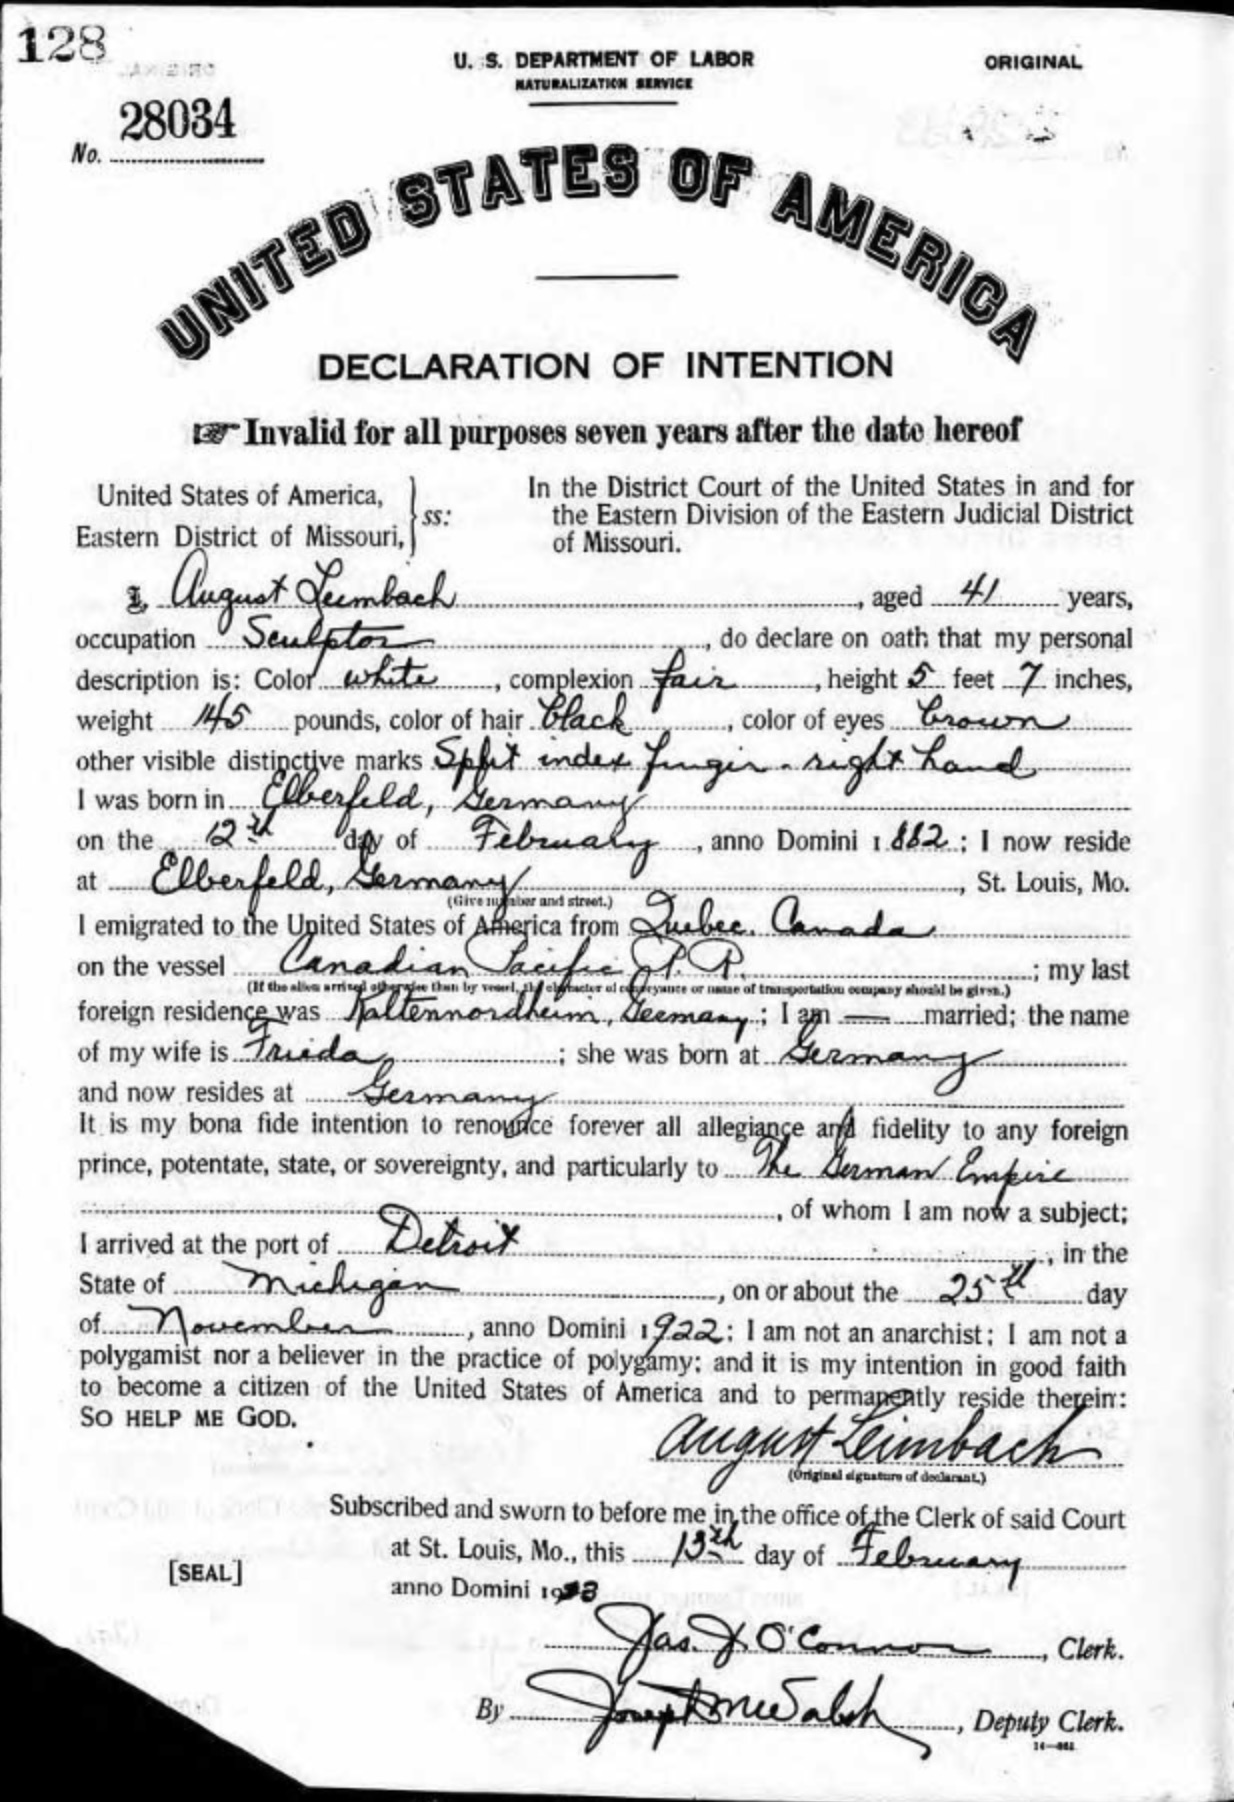 128
28034
No.
U. S. DEPARTMENT OF LABOR
NATURALIZATION SERVICE
ORIGINAL
UNITED STATES OF AMERICA
DECLARATION OF INTENTION
☞ Invalid for all purposes seven years after the date hereof
United States of America,
Eastern District of Missouri,
ss:
In the District Court of the United States in and for
the Eastern Division of the Eastern Judicial District
of Missouri.
I, August Leimbach, aged 41 years,
occupation Sculptor, do declare on oath that my personal
description is: Color white, complexion fair, height 5 feet 7 inches,
weight 145 pounds, color of hair black, color of eyes brown
other visible distinctive marks Split index finger - right hand
I was born in Elberfeld, Germany
on the 12th day of February, anno Domini 1882; I now reside
at Elberfeld, Germany, St. Louis, Mo.
(Give number and street.)
I emigrated to the United States of America from Quebec, Canada
on the vessel Canadian Pacific R. R.; my last
(If the alien arrived otherwise than by vessel, the character of conveyance or name of transportation company should be given.)
foreign residence was Kaltennordheim, Germany; I am — married; the name
of my wife is Frieda; she was born at Germany
and now resides at Germany
It is my bona fide intention to renounce forever all allegiance and fidelity to any foreign
prince, potentate, state, or sovereignty, and particularly to The German Empire
, of whom I am now a subject;
I arrived at the port of Detroit, in the
State of Michigan, on or about the 25th day
of November, anno Domini 1922; I am not an anarchist; I am not a
polygamist nor a believer in the practice of polygamy; and it is my intention in good faith
to become a citizen of the United States of America and to permanently reside therein:
SO HELP ME GOD.
August Leimbach
(Original signature of declarant.)
Subscribed and sworn to before me in the office of the Clerk of said Court
at St. Louis, Mo., this 13th day of February
[SEAL]
anno Domini 1923
Jas. J. O'Connor, Clerk.
By Joseph McWalsh, Deputy Clerk.